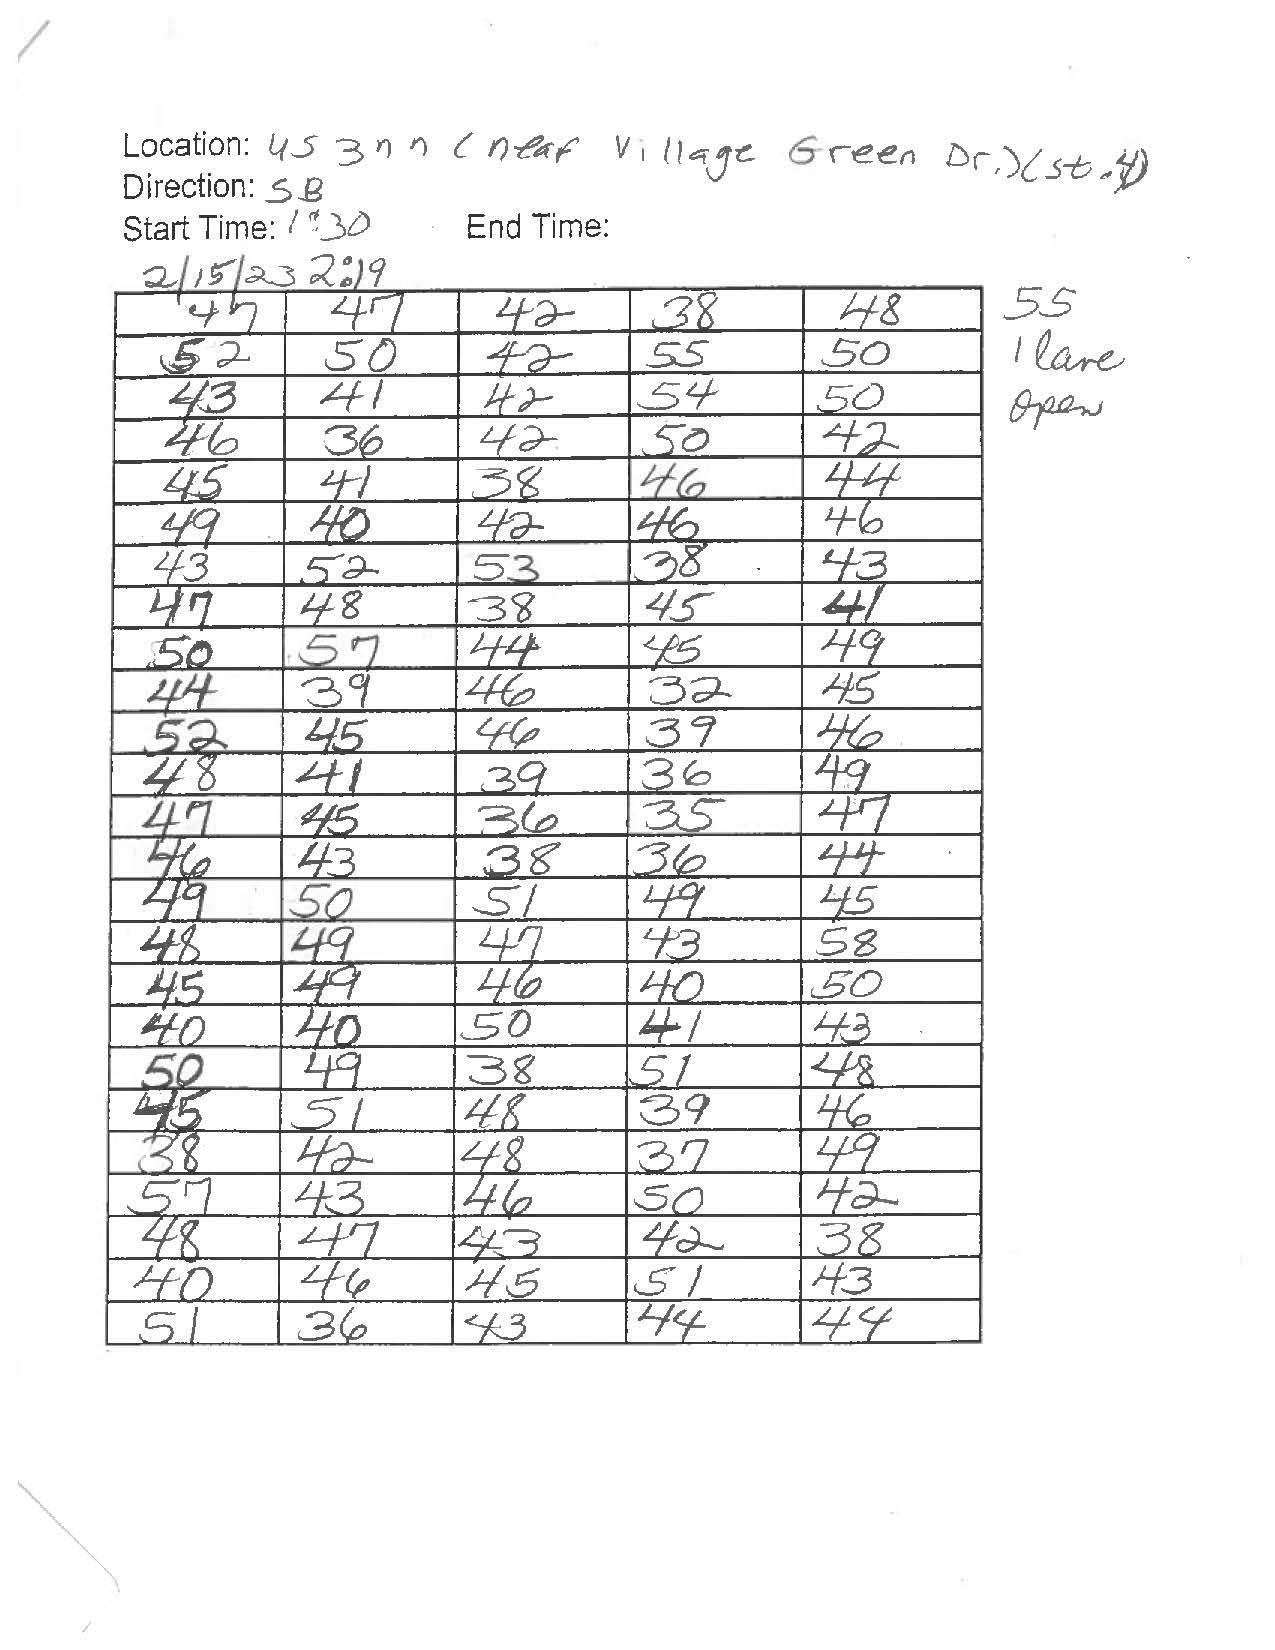 Location: US 377 (near Village Green Dr.)(st.4)
Direction: SB
Start Time: 1:30 End Time:
2/15/23 2:19
47 47 42 38 48 55
52 50 42 55 50 1 lane
43 41 42 54 50 open
46 36 42 50 42
45 41 38 46 44
49 40 42 46 46
43 52 53 38 43
47 48 38 45 41
50 57 44 45 49
44 39 46 32 45
52 45 46 39 46
48 41 39 36 49
47 45 36 35 47
46 43 38 36 44
49 50 51 49 45
48 49 47 43 58
45 49 46 40 50
40 40 50 41 43
50 49 38 51 48
45 51 48 39 46
38 42 48 37 49
57 43 46 50 42
48 47 43 42 38
40 46 45 51 43
51 36 43 44 44